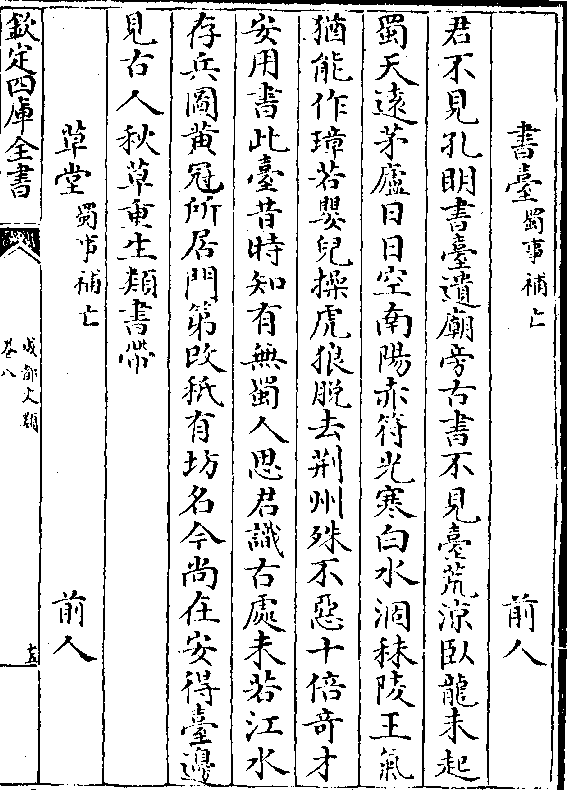 書臺蜀事補亡 前人
君不見孔明書臺遺廟旁古書不見臺荒涼臥龍未起
蜀天遠茅廬日日空南陽赤符光寒白水涸秣陵王氣
猶能作璋若嬰兒操虎狼脫去荆州殊不惡十倍奇才
安用書此臺昔時知有無蜀人思君識古處未若江水
存兵圖黄冠所居門第改秖有坊名今尚在安得臺邊
見古人秋草重生類書帶
草堂蜀事補亡 前人
欽定四庫全書
成都文類
卷八
十五